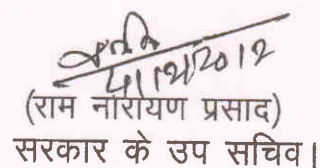 4/12/2012
(राम नारायण प्रसाद)
सरकार के उप सचिव।